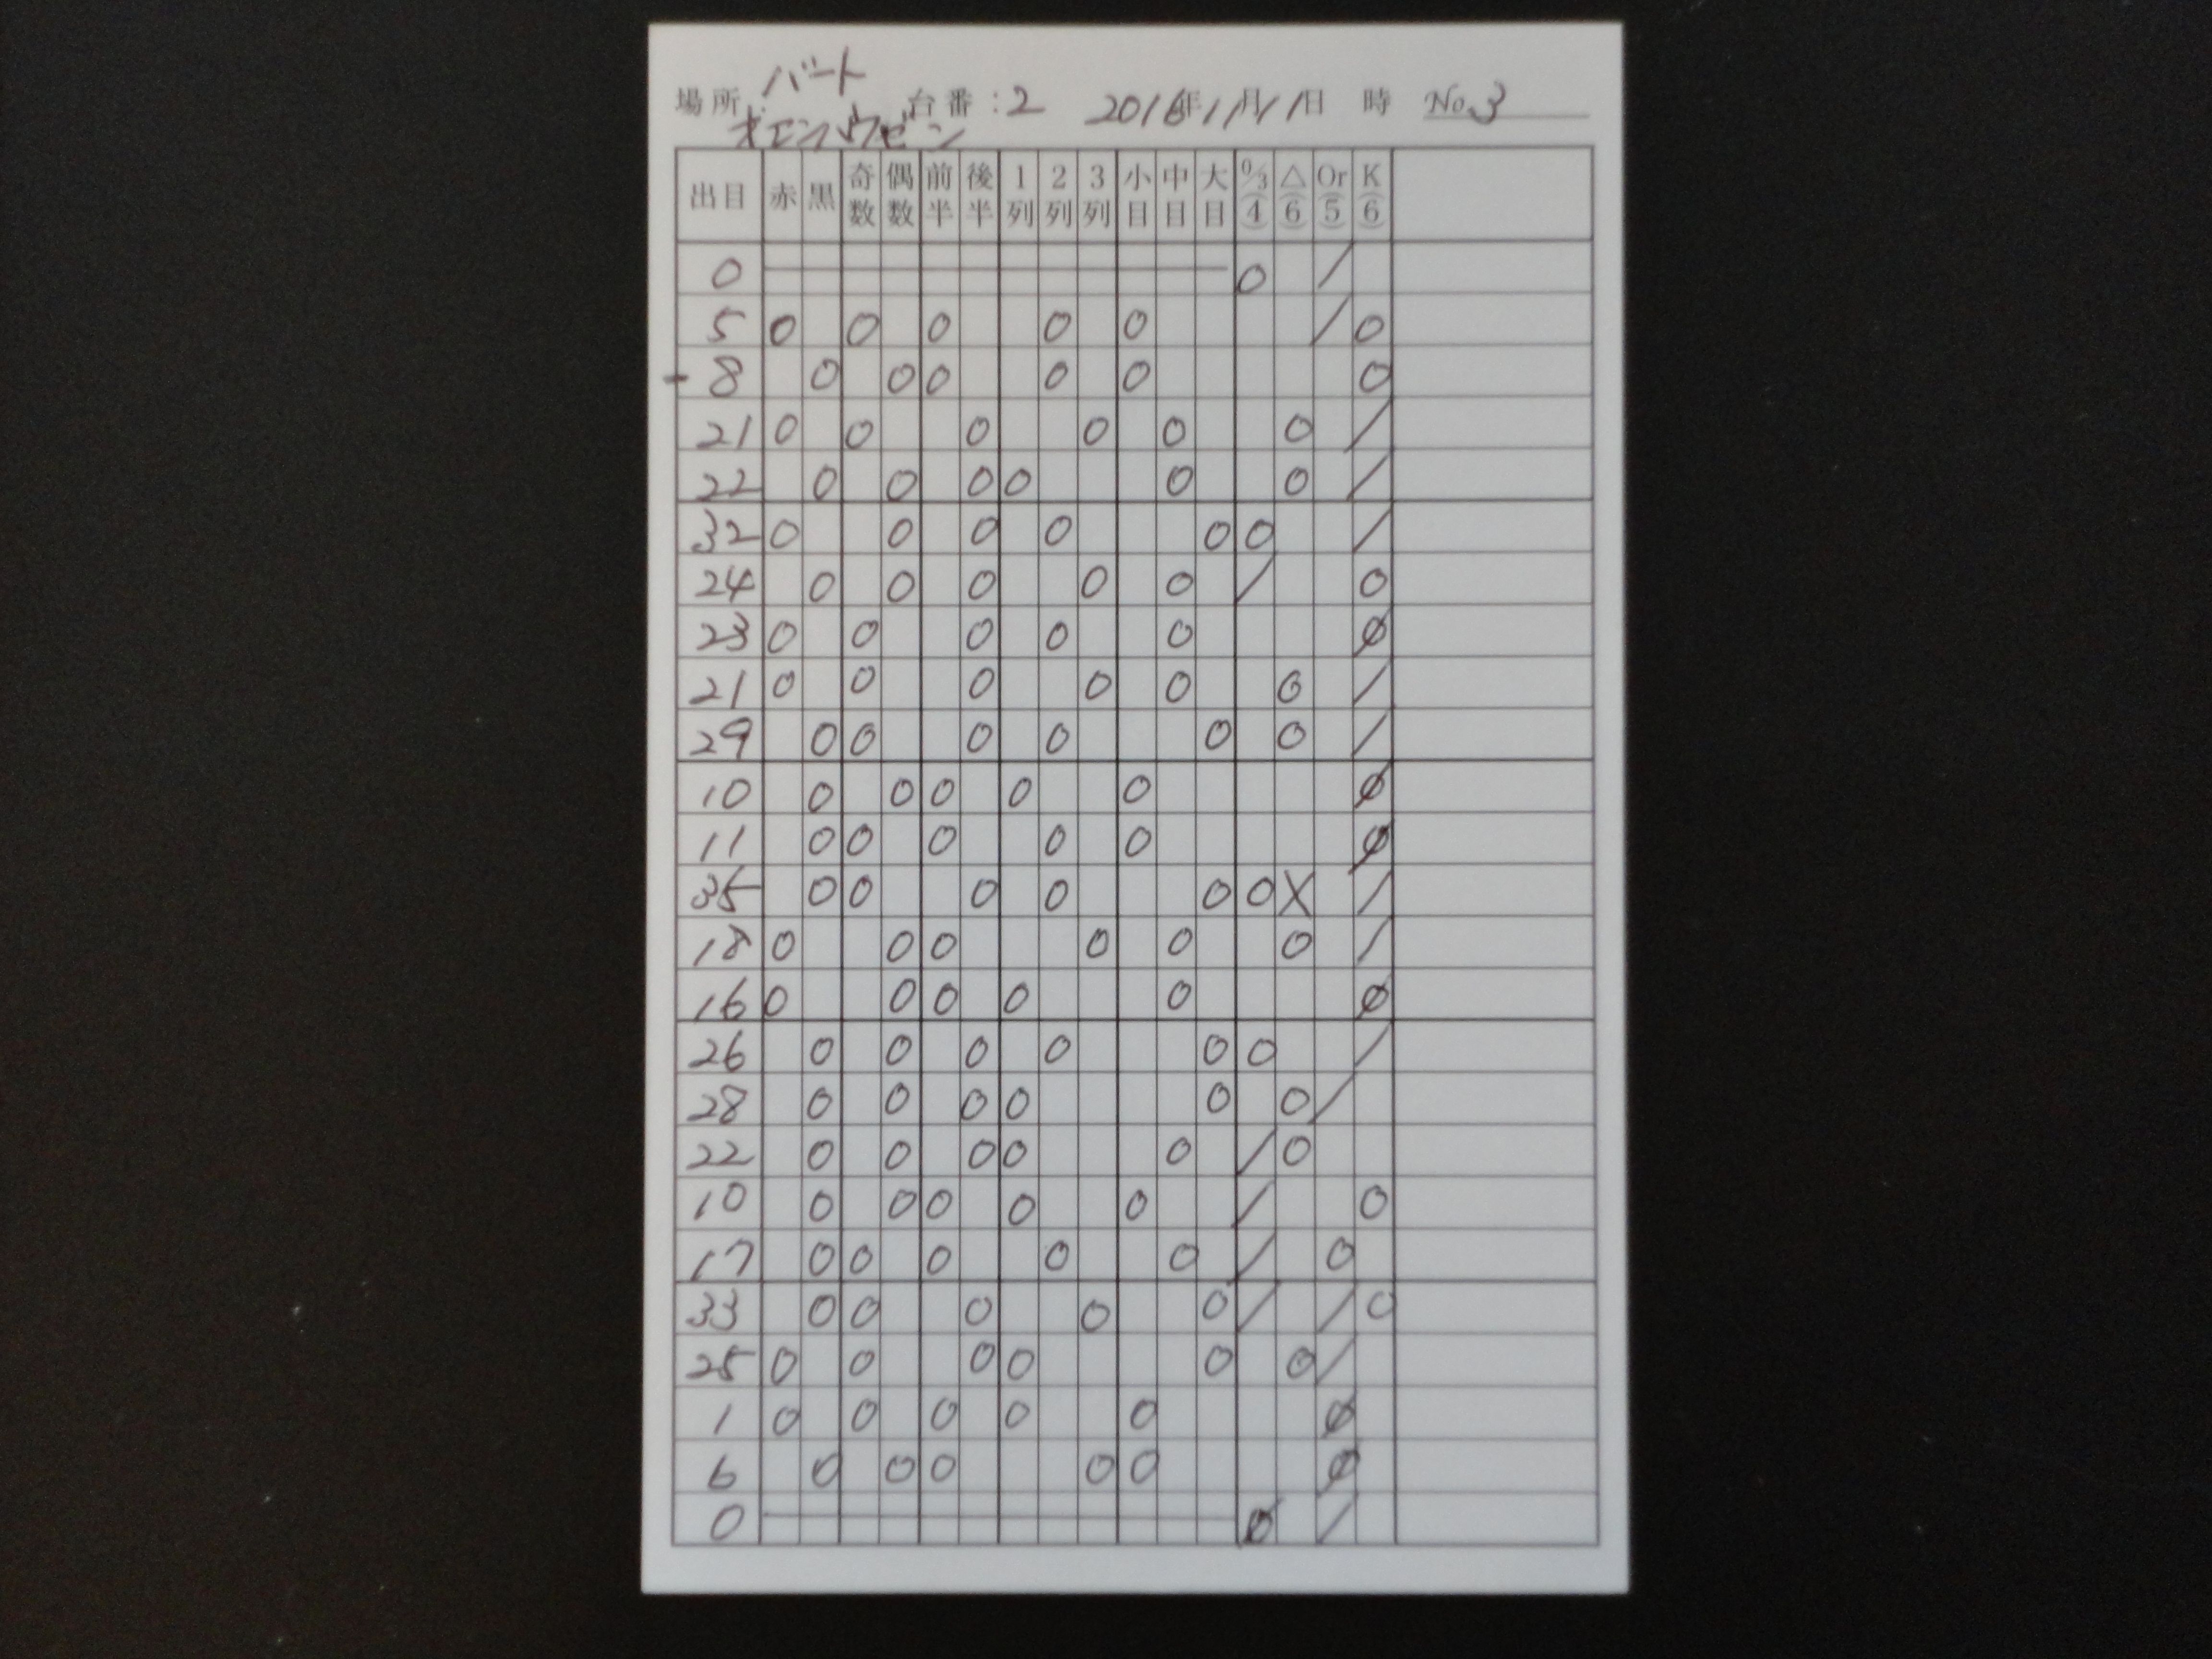 バート
場所: 台番:2 2016年1月11日 時 No.3
オエンハウゼン
出目 赤 黒 奇数 偶数 前半 後半 1列 2列 3列 小目 中目 大目 0/3(4) △(6) Or(5) K(6)
0 0 /
5 0 0 0 0 0 / 0
-8 0 0 0 0 0 0
21 0 0 0 0 0 0 /
22 0 0 0 0 0 0 /
32 0 0 0 0 0 0 /
24 0 0 0 0 0 / 0
23 0 0 0 0 0 Ø
21 0 0 0 0 0 0 /
29 0 0 0 0 0 0 /
10 0 0 0 0 0 Ø
11 0 0 0 0 0 Ø
35 0 0 0 0 0 0 X /
18 0 0 0 0 0 0 /
16 0 0 0 0 0 Ø
26 0 0 0 0 0 0 /
28 0 0 0 0 0 0 /
22 0 0 0 0 0 / 0
10 0 0 0 0 0 / 0
17 0 0 0 0 0 / 0
33 0 0 0 0 0 / / 0
25 0 0 0 0 0 0 /
1 0 0 0 0 0 Ø
6 0 0 0 0 0 Ø
0 Ø /